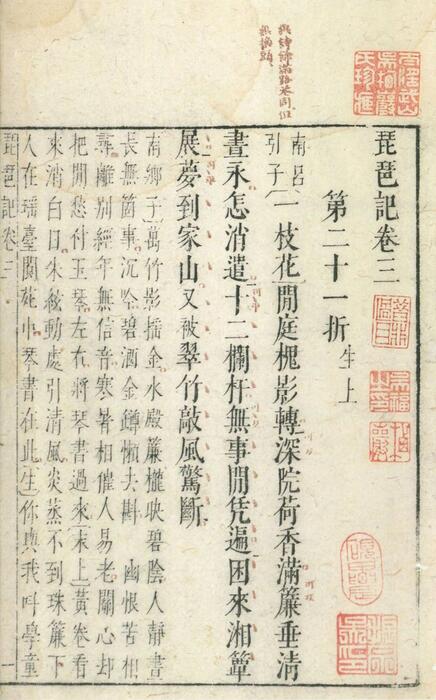 琵琶記卷三
第二十一折
生上
南呂引子
一枝花
閒庭槐影轉深院荷香滿簾垂清
晝永怎消遣十二欄杆無事閒凭遍困來湘簟
展夢到家山又被翠竹敲風驚斷
南鄉子
萬竹影搖金水殿簾櫳映碧陰人靜晝
長無箇事沉吟碧酒金鐏懶去斟　幽恨苦相
尋離別經年無信音寒暑相催人易老關心却
把閒愁付玉琴左右將琴書過來末上黃卷看
來消白日朱絃動處引清風炎蒸不到珠簾下
人在瑶臺閬苑中琴書在此生你與我叫學童
琵琶記卷三
一